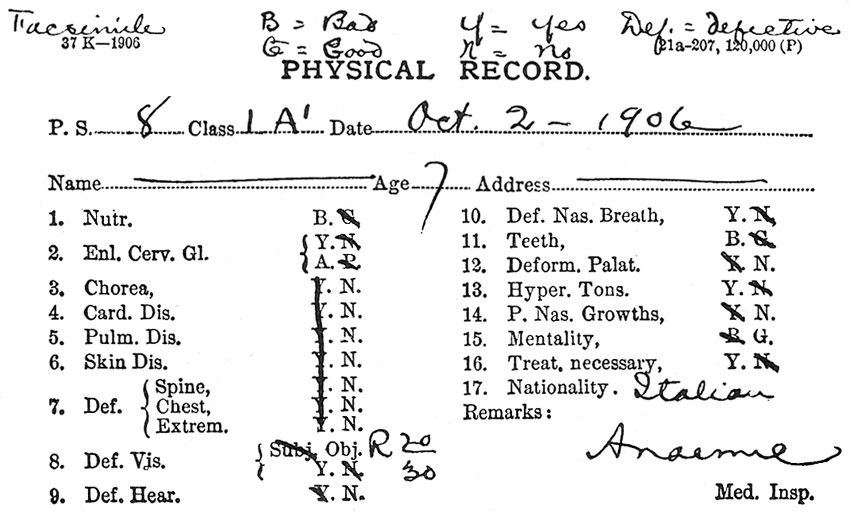 Facsimile B = Bad Y = Yes Def. = defective
37 K—1906 G = Good N = No (21a-207, 120,000 (P)
PHYSICAL RECORD.
P. S. 8 Class 1 A' Date Oct. 2 - 1906
Name Age 7 Address
1. Nutr. B. G.
2. Enl. Cerv. Gl. { Y. N.
A. P.
3. Chorea, Y. N.
4. Card. Dis. Y. N.
5. Pulm. Dis. Y. N.
6. Skin Dis. Y. N.
7. Def. { Spine, Y. N.
Chest, Y. N.
Extrem. Y. N.
8. Def. Vis. { Subj. Obj. R 20
Y. N. 30
9. Def. Hear. Y. N.
10. Def. Nas. Breath, Y. N.
11. Teeth, B. G.
12. Deform. Palat. Y. N.
13. Hyper. Tons. Y. N.
14. P. Nas. Growths, Y. N.
15. Mentality, B. G.
16. Treat. necessary, Y. N.
17. Nationality. Italian
Remarks:
Anaemic
Med. Insp.